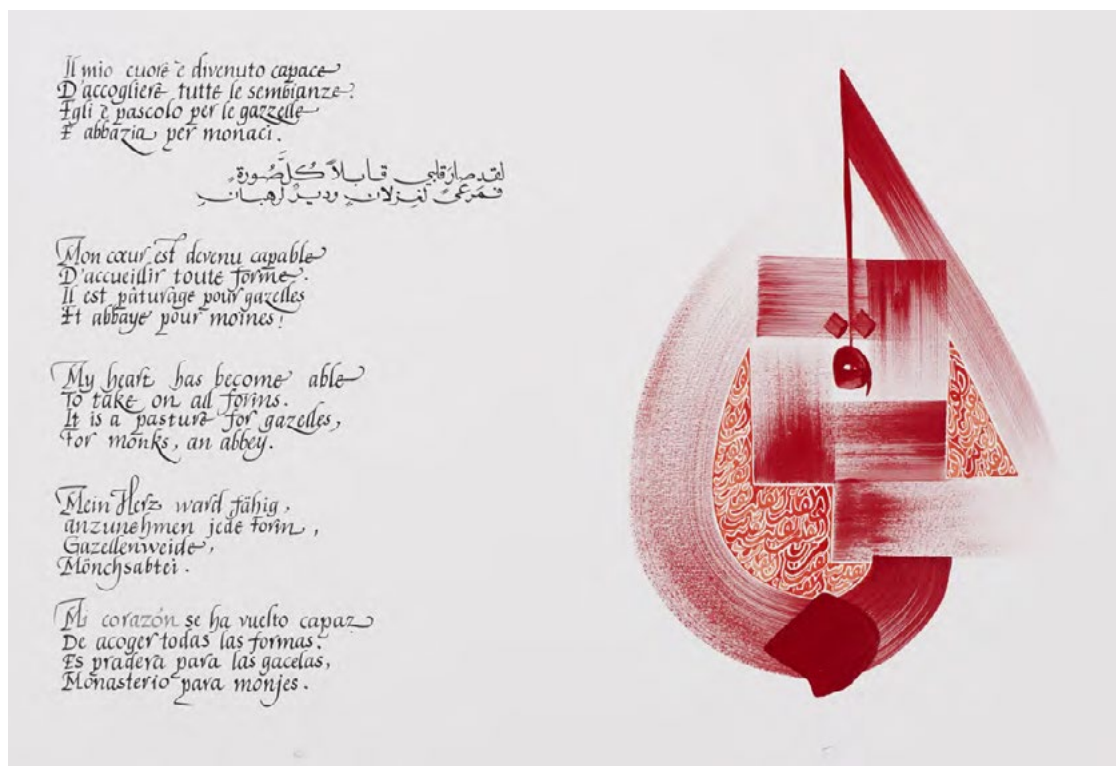 Il mio cuore è divenuto capace
D'accogliere tutte le sembianze.
Egli è pascolo per le gazzelle
E abbazia per monaci.
لقد صارَ قلبي قابلاً كُلَّ صُورةٍ
فمَرعىً لغزلانٍ وديرٌ لرهبانٍ
Mon cœur est devenu capable
D'accueillir toute forme.
Il est pâturage pour gazelles
Et abbaye pour moines!
My heart has become able
To take on all forms.
It is a pasture for gazelles,
For monks, an abbey.
Mein Herz ward fähig,
anzunehmen jede Form,
Gazellenweide,
Mönchsabtei.
Mi corazón se ha vuelto capaz
De acoger todas las formas.
Es pradera para las gacelas,
Monasterio para monjes.